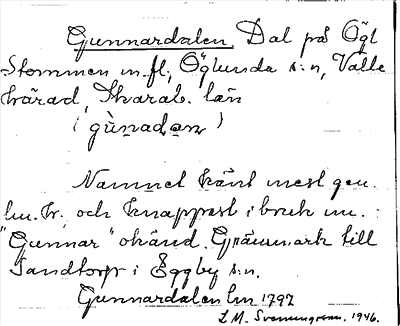 Gunnardalen, Dal på Ögl
Stommen m.fl., Öglunda s:n, Valle
härad, Skarab. län
(gùnadan)
Namnet känt mest gen.
lm. kr. och knappast i bruk nu.
"Gunnar" okänd. Gränsmark till
Sandtorp i Eggby s:n.
Gunnardalen lm 1797
L.M. Svenungsson. 1946.